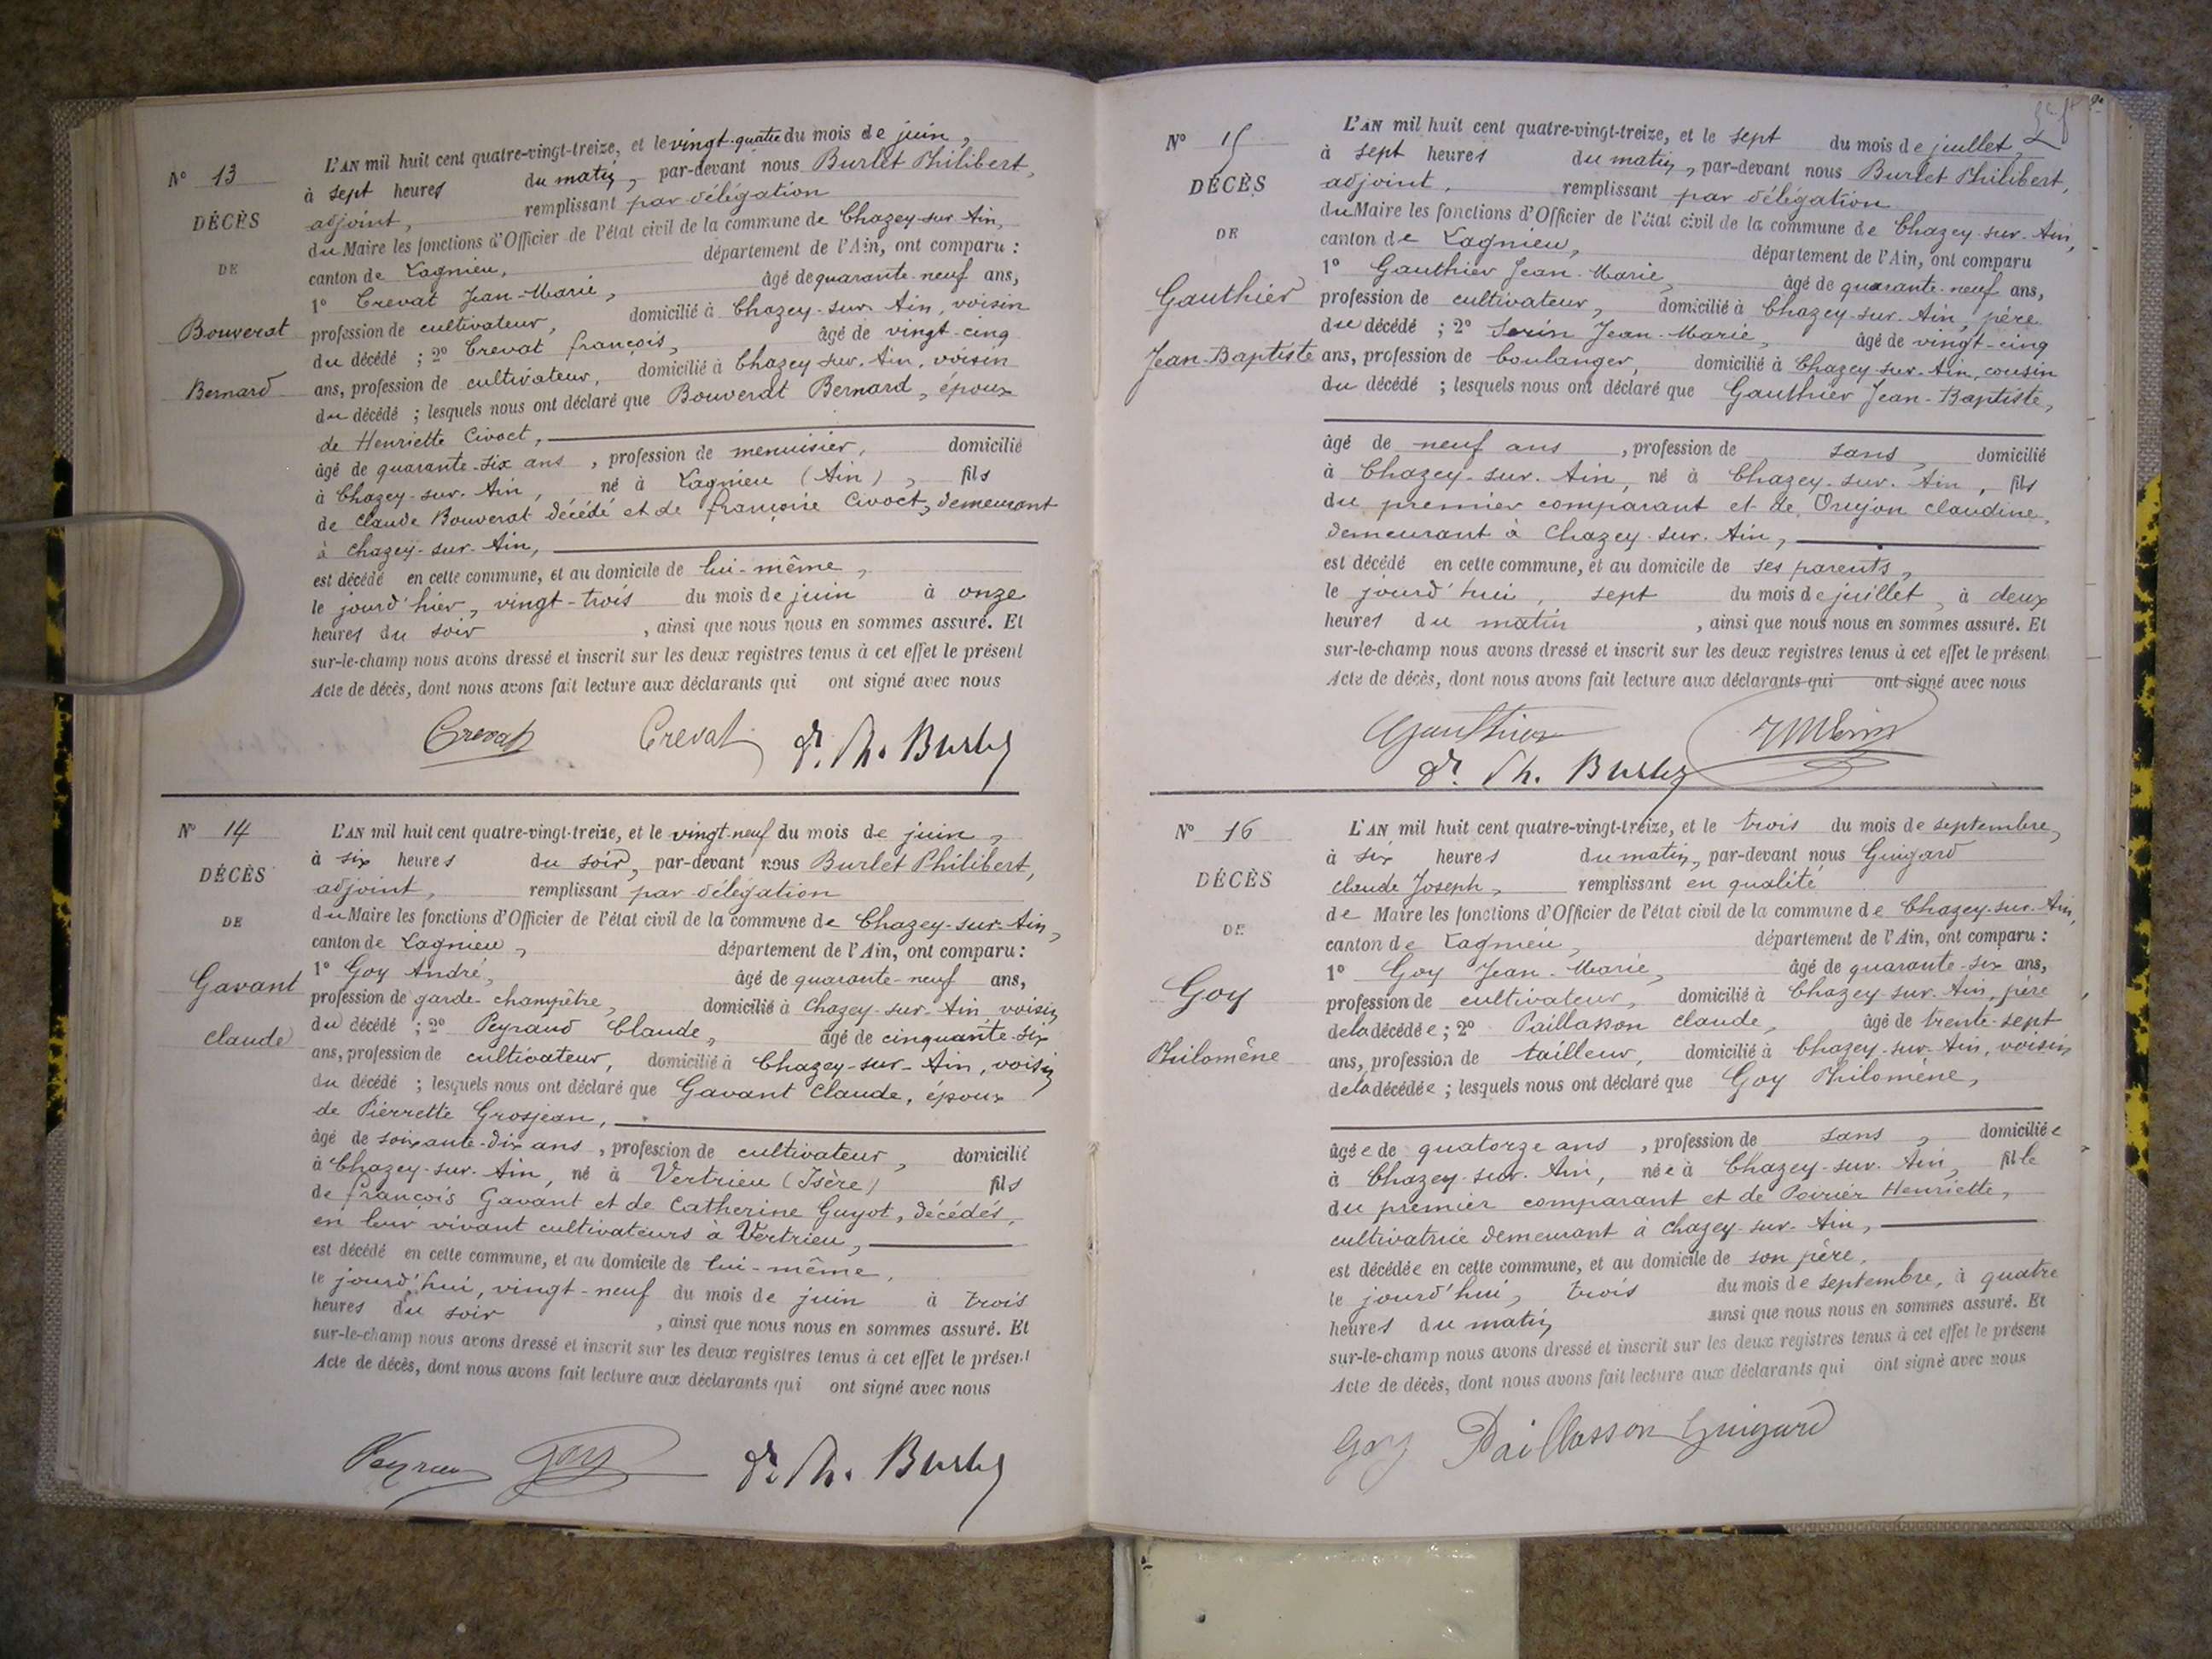 N° 13
DÉCÈS
DE
Bouverat
Bernard
L'AN mil huit cent quatre-vingt-treize, et le vingt-quatre du mois de juin,
à sept heures du matin, par-devant nous Burlet Philibert,
adjoint, remplissant par délégation
du Maire les fonctions d'Officier de l'état civil de la commune de Chazey-sur-Ain,
canton de Lagnieu, département de l'Ain, ont comparu :
1° Crevat Jean-Marie, âgé de quarante-neuf ans,
profession de cultivateur, domicilié à Chazey-sur-Ain, voisin
du décédé ; 2° Crevat françois, âgé de vingt-cinq
ans, profession de cultivateur, domicilié à Chazey-sur-Ain, voisin
du décédé ; lesquels nous ont déclaré que Bouverat Bernard, époux
de Henriette Civoct,
âgé de quarante-six ans, profession de menuisier, domicilié
à Chazey-sur-Ain, né à Lagnieu (Ain), fils
de Claude Bouverat décédé et de françoise Civoct, demeurant
à Chazey-sur-Ain,
est décédé en cette commune, et au domicile de lui-même,
le jourd'hier, vingt-trois du mois de juin à onze
heures du soir, ainsi que nous nous en sommes assuré. Et
sur-le-champ nous avons dressé et inscrit sur les deux registres tenus à cet effet le présent
Acte de décès, dont nous avons fait lecture aux déclarants qui ont signé avec nous
Crevat Crevat Dr. Ph. Burlet
N° 14
DÉCÈS
DE
Gavant
Claude
L'AN mil huit cent quatre-vingt-treize, et le vingt-neuf du mois de juin,
à six heures du soir, par-devant nous Burlet Philibert,
adjoint, remplissant par délégation
du Maire les fonctions d'Officier de l'état civil de la commune de Chazey-sur-Ain,
canton de Lagnieu, département de l'Ain, ont comparu :
1° Goy André, âgé de quarante-neuf ans,
profession de garde-champêtre, domicilié à Chazey-sur-Ain, voisin
du décédé ; 2° Peyraud Claude, âgé de cinquante-six
ans, profession de cultivateur, domicilié à Chazey-sur-Ain, voisin
du décédé ; lesquels nous ont déclaré que Gavant Claude, époux
de Pierrette Grosjean,
âgé de soixante-dix ans, profession de cultivateur, domicilié
à Chazey-sur-Ain, né à Vertrieu (Isère) fils
de françois Gavant et de Catherine Guyot, décédés,
en leur vivant cultivateurs à Vertrieu,
est décédé en cette commune, et au domicile de lui-même,
le jourd'hui, vingt-neuf du mois de juin à trois
heures du soir, ainsi que nous nous en sommes assuré. Et
sur-le-champ nous avons dressé et inscrit sur les deux registres tenus à cet effet le présent
Acte de décès, dont nous avons fait lecture aux déclarants qui ont signé avec nous
Peyraud Goy Dr. Ph. Burlet
N° 15
DÉCÈS
DE
Gauthier
Jean-Baptiste
L'AN mil huit cent quatre-vingt-treize, et le sept du mois de juillet,
à sept heures du matin, par-devant nous Burlet Philibert,
adjoint, remplissant par délégation
du Maire les fonctions d'Officier de l'état civil de la commune de Chazey-sur-Ain,
canton de Lagnieu, département de l'Ain, ont comparu
1° Gauthier Jean-Marie, âgé de quarante-neuf ans,
profession de cultivateur, domicilié à Chazey-sur-Ain, père
du décédé ; 2° Serin Jean-Marie, âgé de vingt-cinq
ans, profession de boulanger, domicilié à Chazey-sur-Ain, cousin
du décédé ; lesquels nous ont déclaré que Gauthier Jean-Baptiste,
âgé de neuf ans, profession de sans, domicilié
à Chazey-sur-Ain, né à Chazey-sur-Ain, fils
du premier comparant et de Orujon claudine,
demeurant à Chazey-sur-Ain,
est décédé en cette commune, et au domicile de ses parents,
le jourd'hui, sept du mois de juillet, à deux
heures du matin, ainsi que nous nous en sommes assuré. Et
sur-le-champ nous avons dressé et inscrit sur les deux registres tenus à cet effet le présent
Acte de décès, dont nous avons fait lecture aux déclarants qui ont signé avec nous
Gauthier
Dr. Ph. Burlet
N° 16
DÉCÈS
DE
Goy
Philomène
L'AN mil huit cent quatre-vingt-treize, et le trois du mois de septembre,
à six heures du matin, par-devant nous Guigard
Claude Joseph, remplissant en qualité
de Maire les fonctions d'Officier de l'état civil de la commune de Chazey-sur-Ain,
canton de Lagnieu, département de l'Ain, ont comparu :
1° Goy Jean-Marie, âgé de quarante-six ans,
profession de cultivateur, domicilié à Chazey-sur-Ain, père
de la décédée ; 2° Paillasson Claude, âgé de trente-sept
ans, profession de tailleur, domicilié à Chazey-sur-Ain, voisin
de la décédée ; lesquels nous ont déclaré que Goy Philomène,
âgée de quatorze ans, profession de sans, domiciliée
à Chazey-sur-Ain, née à Chazey-sur-Ain, fille
du premier comparant et de Poirier Henriette,
cultivatrice demeurant à Chazey-sur-Ain,
est décédée en cette commune, et au domicile de son père,
le jourd'hui, trois du mois de septembre, à quatre
heures du matin ainsi que nous nous en sommes assuré. Et
sur-le-champ nous avons dressé et inscrit sur les deux registres tenus à cet effet le présent
Acte de décès, dont nous avons fait lecture aux déclarants qui ont signé avec nous
Goy Paillasson Guigard